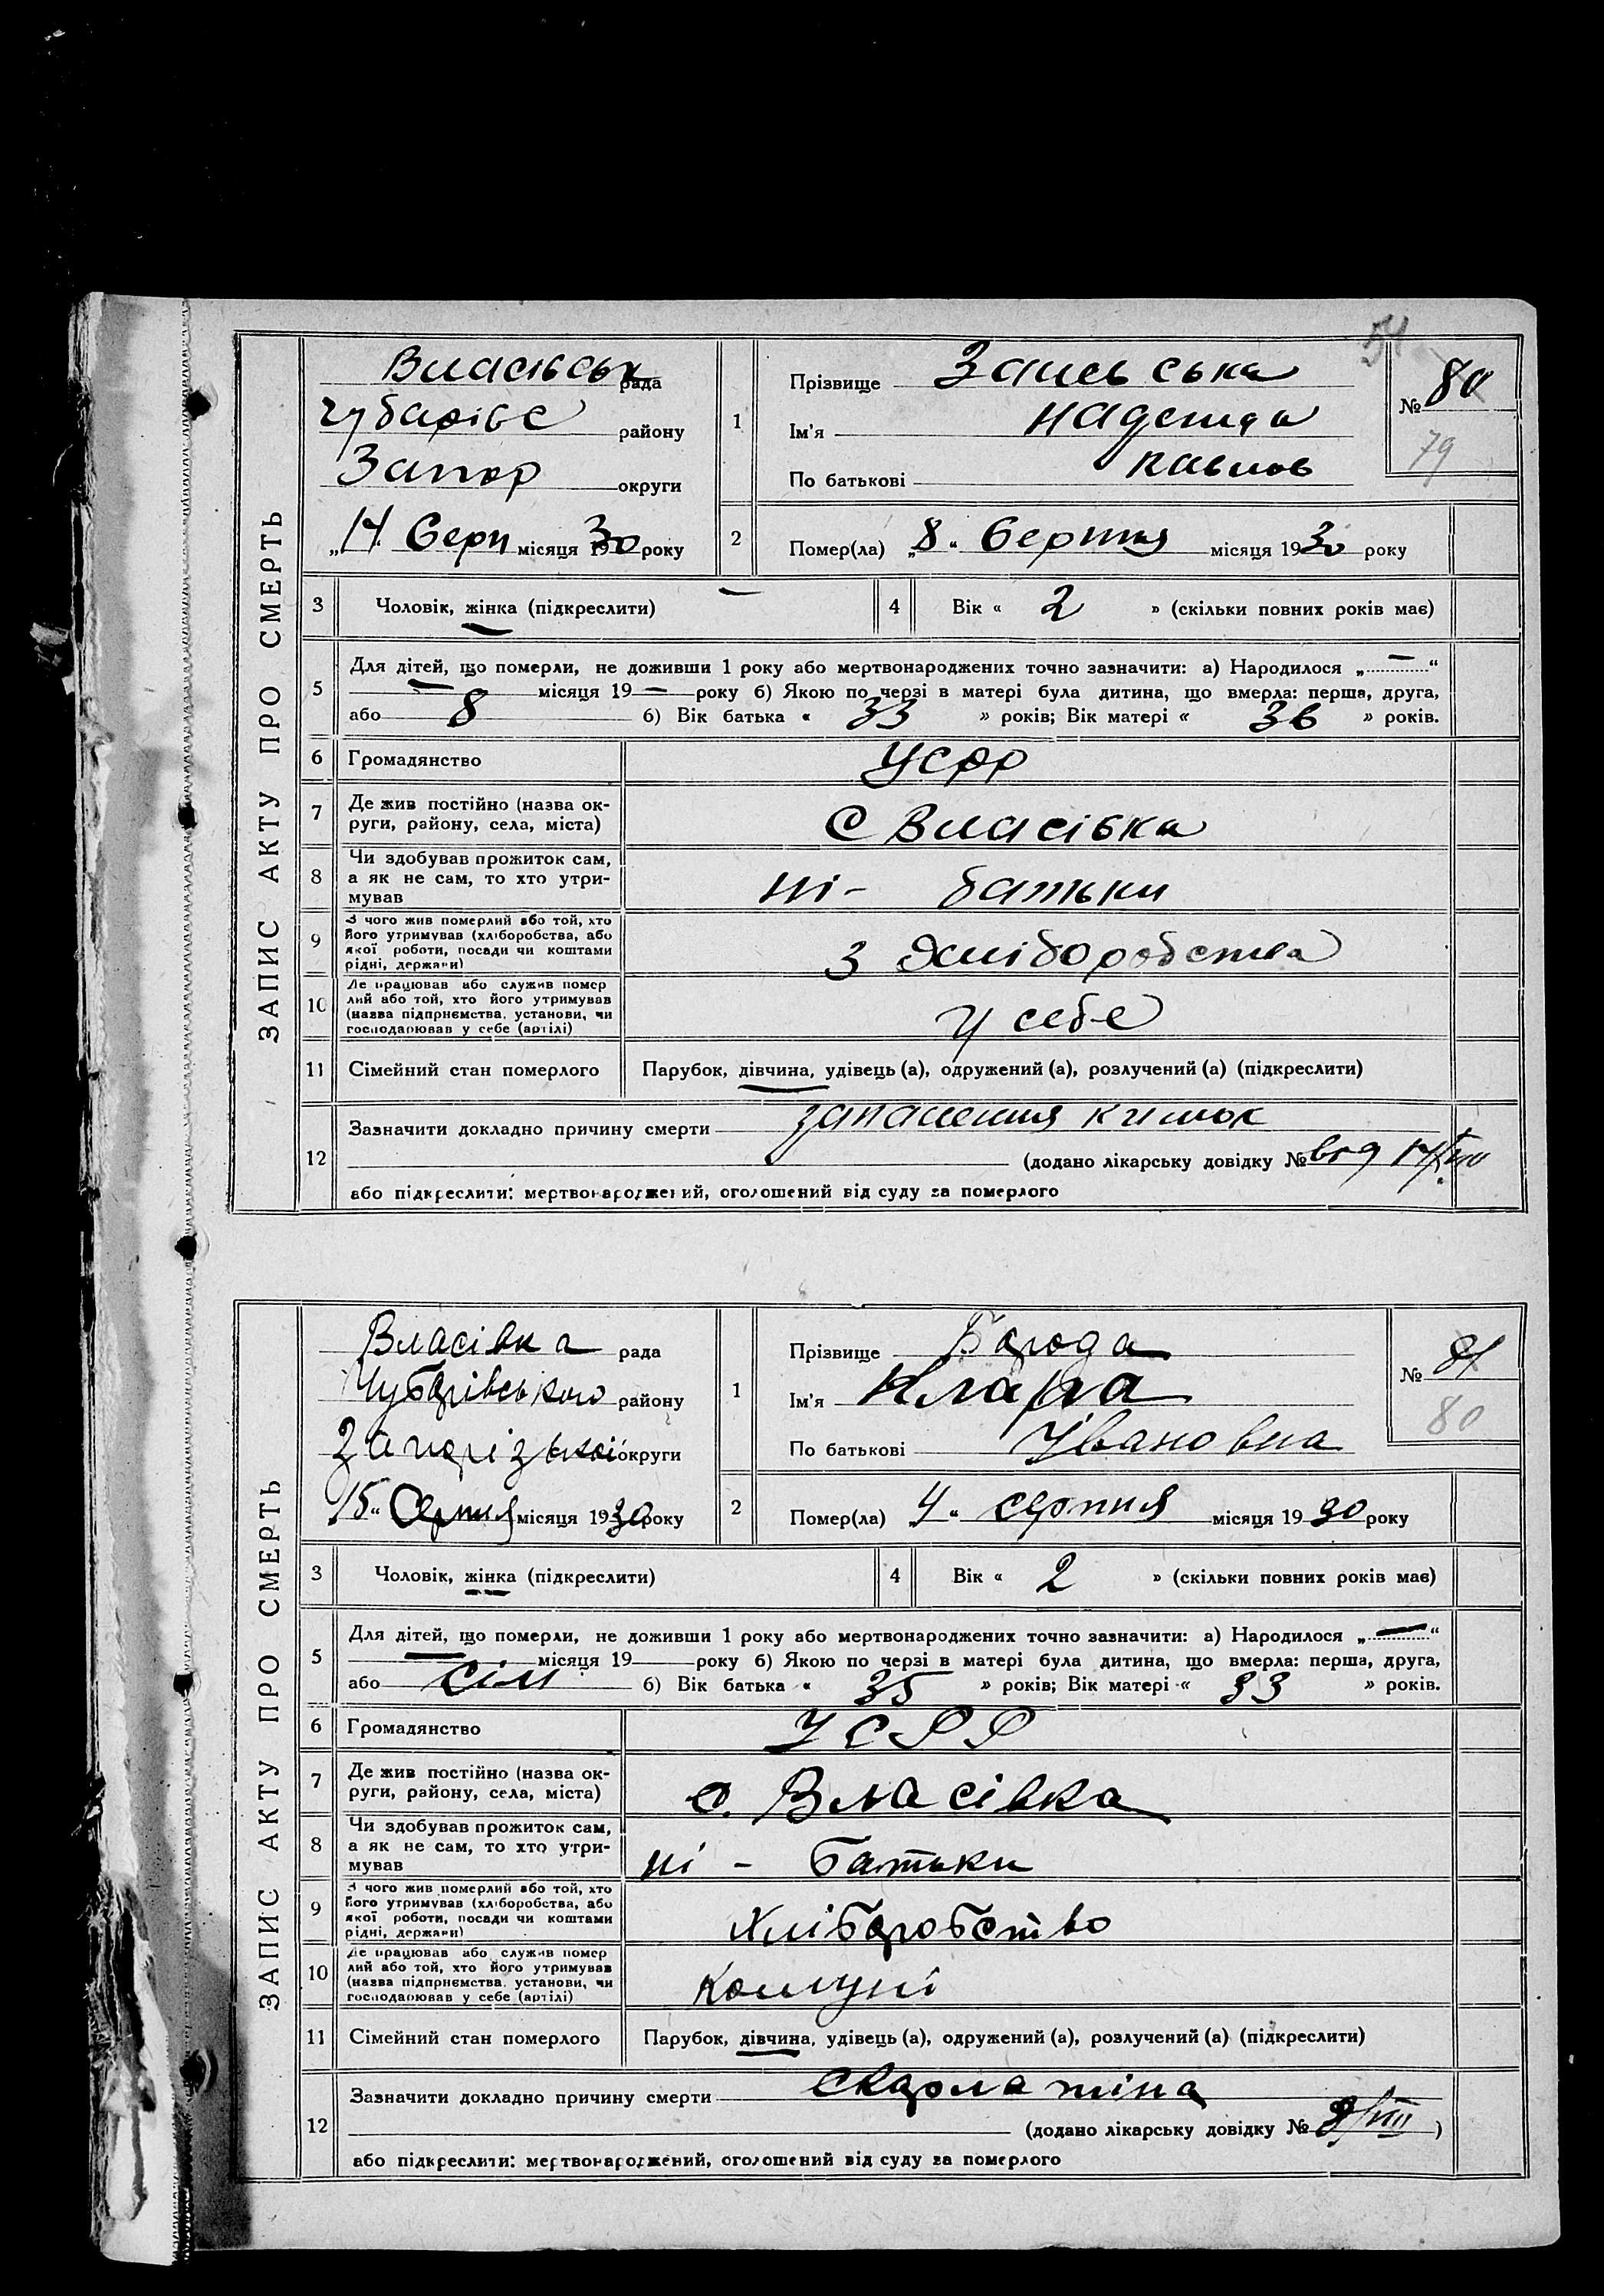 54
ЗАПИС АКТУ ПРО СМЕРТЬ
Власівськ рада
Чубарівс району
Запор округи
„14“ Серп місяця 1930 року
1
Прізвище
Ім'я Надежда
По батькові Павлов
№ 80
79
2
Помер(ла) „8“ Серпня місяця 1930 року
3
Чоловік, жінка (підкреслити) —
4
Вік « 2 » (скільки повних років має)
5
Для дітей, що померли, не доживши 1 року або мертвонароджених точно зазначити: а) Народилося „—“
— місяця 19— року б) Якою по черзі в матері була дитина, що вмерла: перша, друга,
або 8 б) Вік батька « 33 » років; Вік матері « 36 » років.
6
Громадянство
УСРР
7
Де жив постійно (назва ок-
руги, району, села, міста)
С Власівка
8
Чи здобував прожиток сам,
а як не сам, то хто утри-
мував
ні - батьки
9
З чого жив померлий або той, хто
його утримував (хліборобства, або
якої роботи, посади чи коштами
рідні, держави)
З хліборобства
10
Де працював або служив помер
лий або той, хто його утримував
(назва підприємства, установи, чи
господарював у себе (артілі)
у себе
11
Сімейний стан померлого
Парубок, дівчина, удівець (а), одружений (а), розлучений (а) (підкреслити)
12
Зазначити докладно причину смерти запалення кишок
(додано лікарську довідку № від 14/VIII
або підкреслити: мертвонароджений, оголошений від суду за померлого
ЗАПИС АКТУ ПРО СМЕРТЬ
Власівка рада
Чубарівського району
Запорізької округи
„15“ Серпня місяця 1930 року
1
Прізвище
Ім'я Клара
По батькові Івановна
№ 81
80
2
Помер(ла) „4“ серпня місяця 1930 року
3
Чоловік, жінка (підкреслити)
4
Вік « 2 » (скільки повних років має)
5
Для дітей, що померли, не доживши 1 року або мертвонароджених точно зазначити: а) Народилося „—“
— місяця 19 року б) Якою по черзі в матері була дитина, що вмерла: перша, друга,
або сім б) Вік батька « 35 » років; Вік матері « 33 » років.
6
Громадянство
УСРР
7
Де жив постійно (назва ок-
руги, району, села, міста)
с. Власівка
8
Чи здобував прожиток сам,
а як не сам, то хто утри-
мував
ні - батьки
9
З чого жив померлий або той, хто
його утримував (хліборобства, або
якої роботи, посади чи коштами
рідні, держави)
хліборобство
10
Де працював або служив помер
лий або той, хто його утримував
(назва підприємства, установи, чи
господарював у себе (артілі)
Комуні
11
Сімейний стан померлого
Парубок, дівчина, удівець (а), одружений (а), розлучений (а) (підкреслити)
12
Зазначити докладно причину смерти скарлатіна
(додано лікарську довідку № 8/VIII )
або підкреслити: мертвонароджений, оголошений від суду за померлого